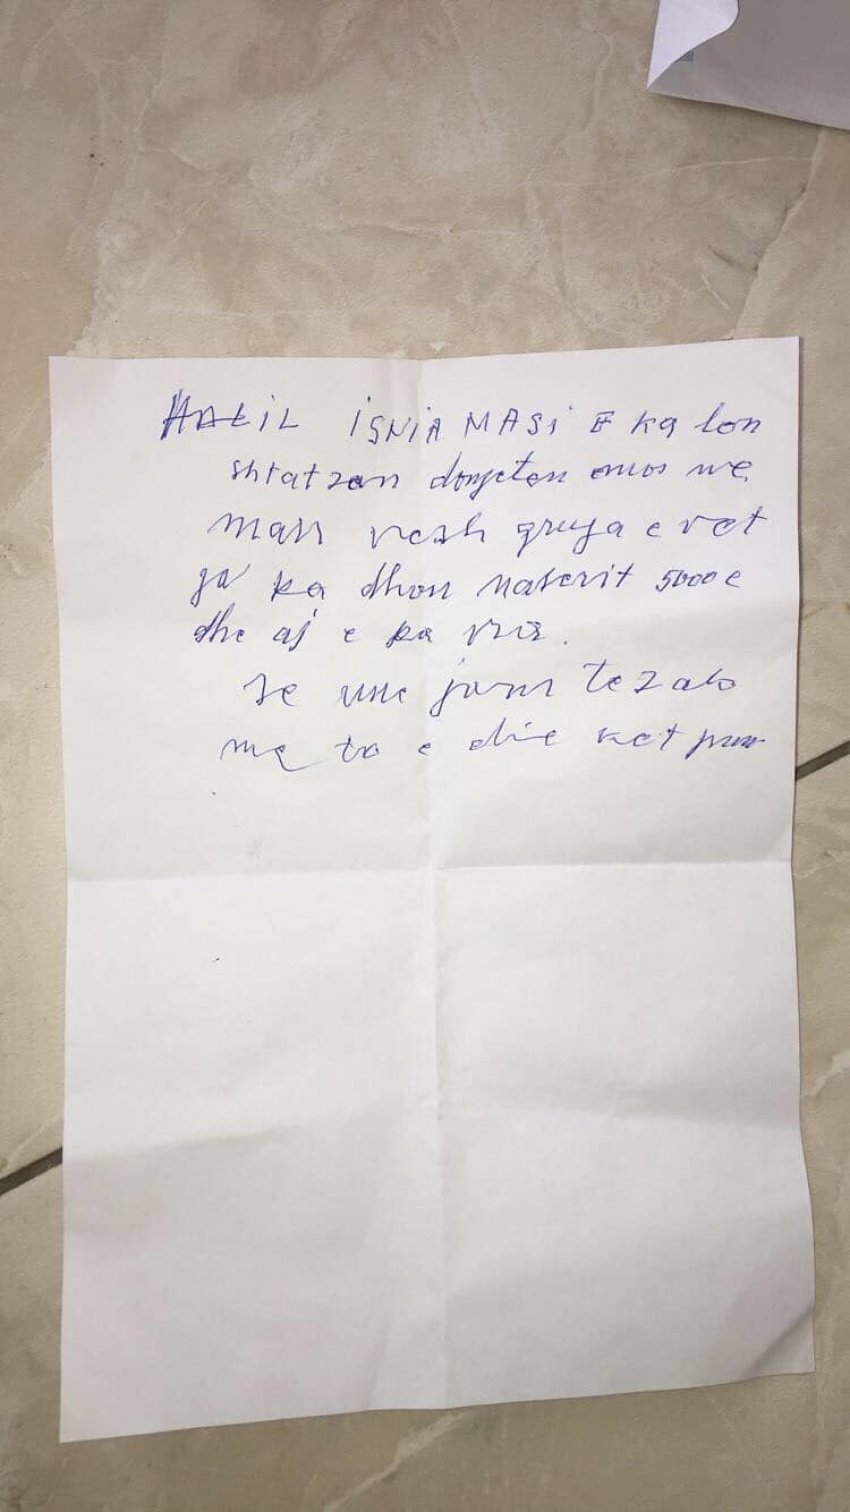 HALIL ISNIA MASI E ka lon
shtatzan donjeten mos me
marr vesh gruja e vet
ja ka dhon naserit 5000 e
dhe aj e ka vra.
se une jam tezak
me ta e die ket pun